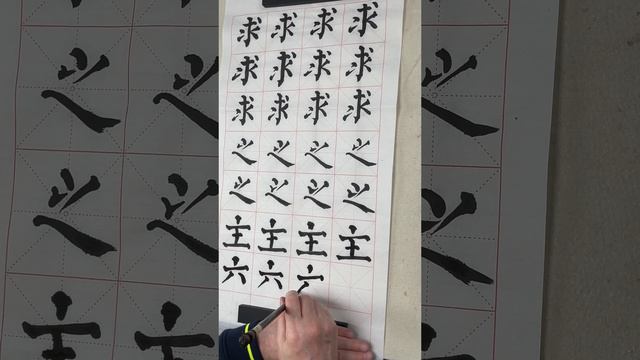 求求求求
求求求求
求求求求
之之之之
之之之之
主主主主
六六六